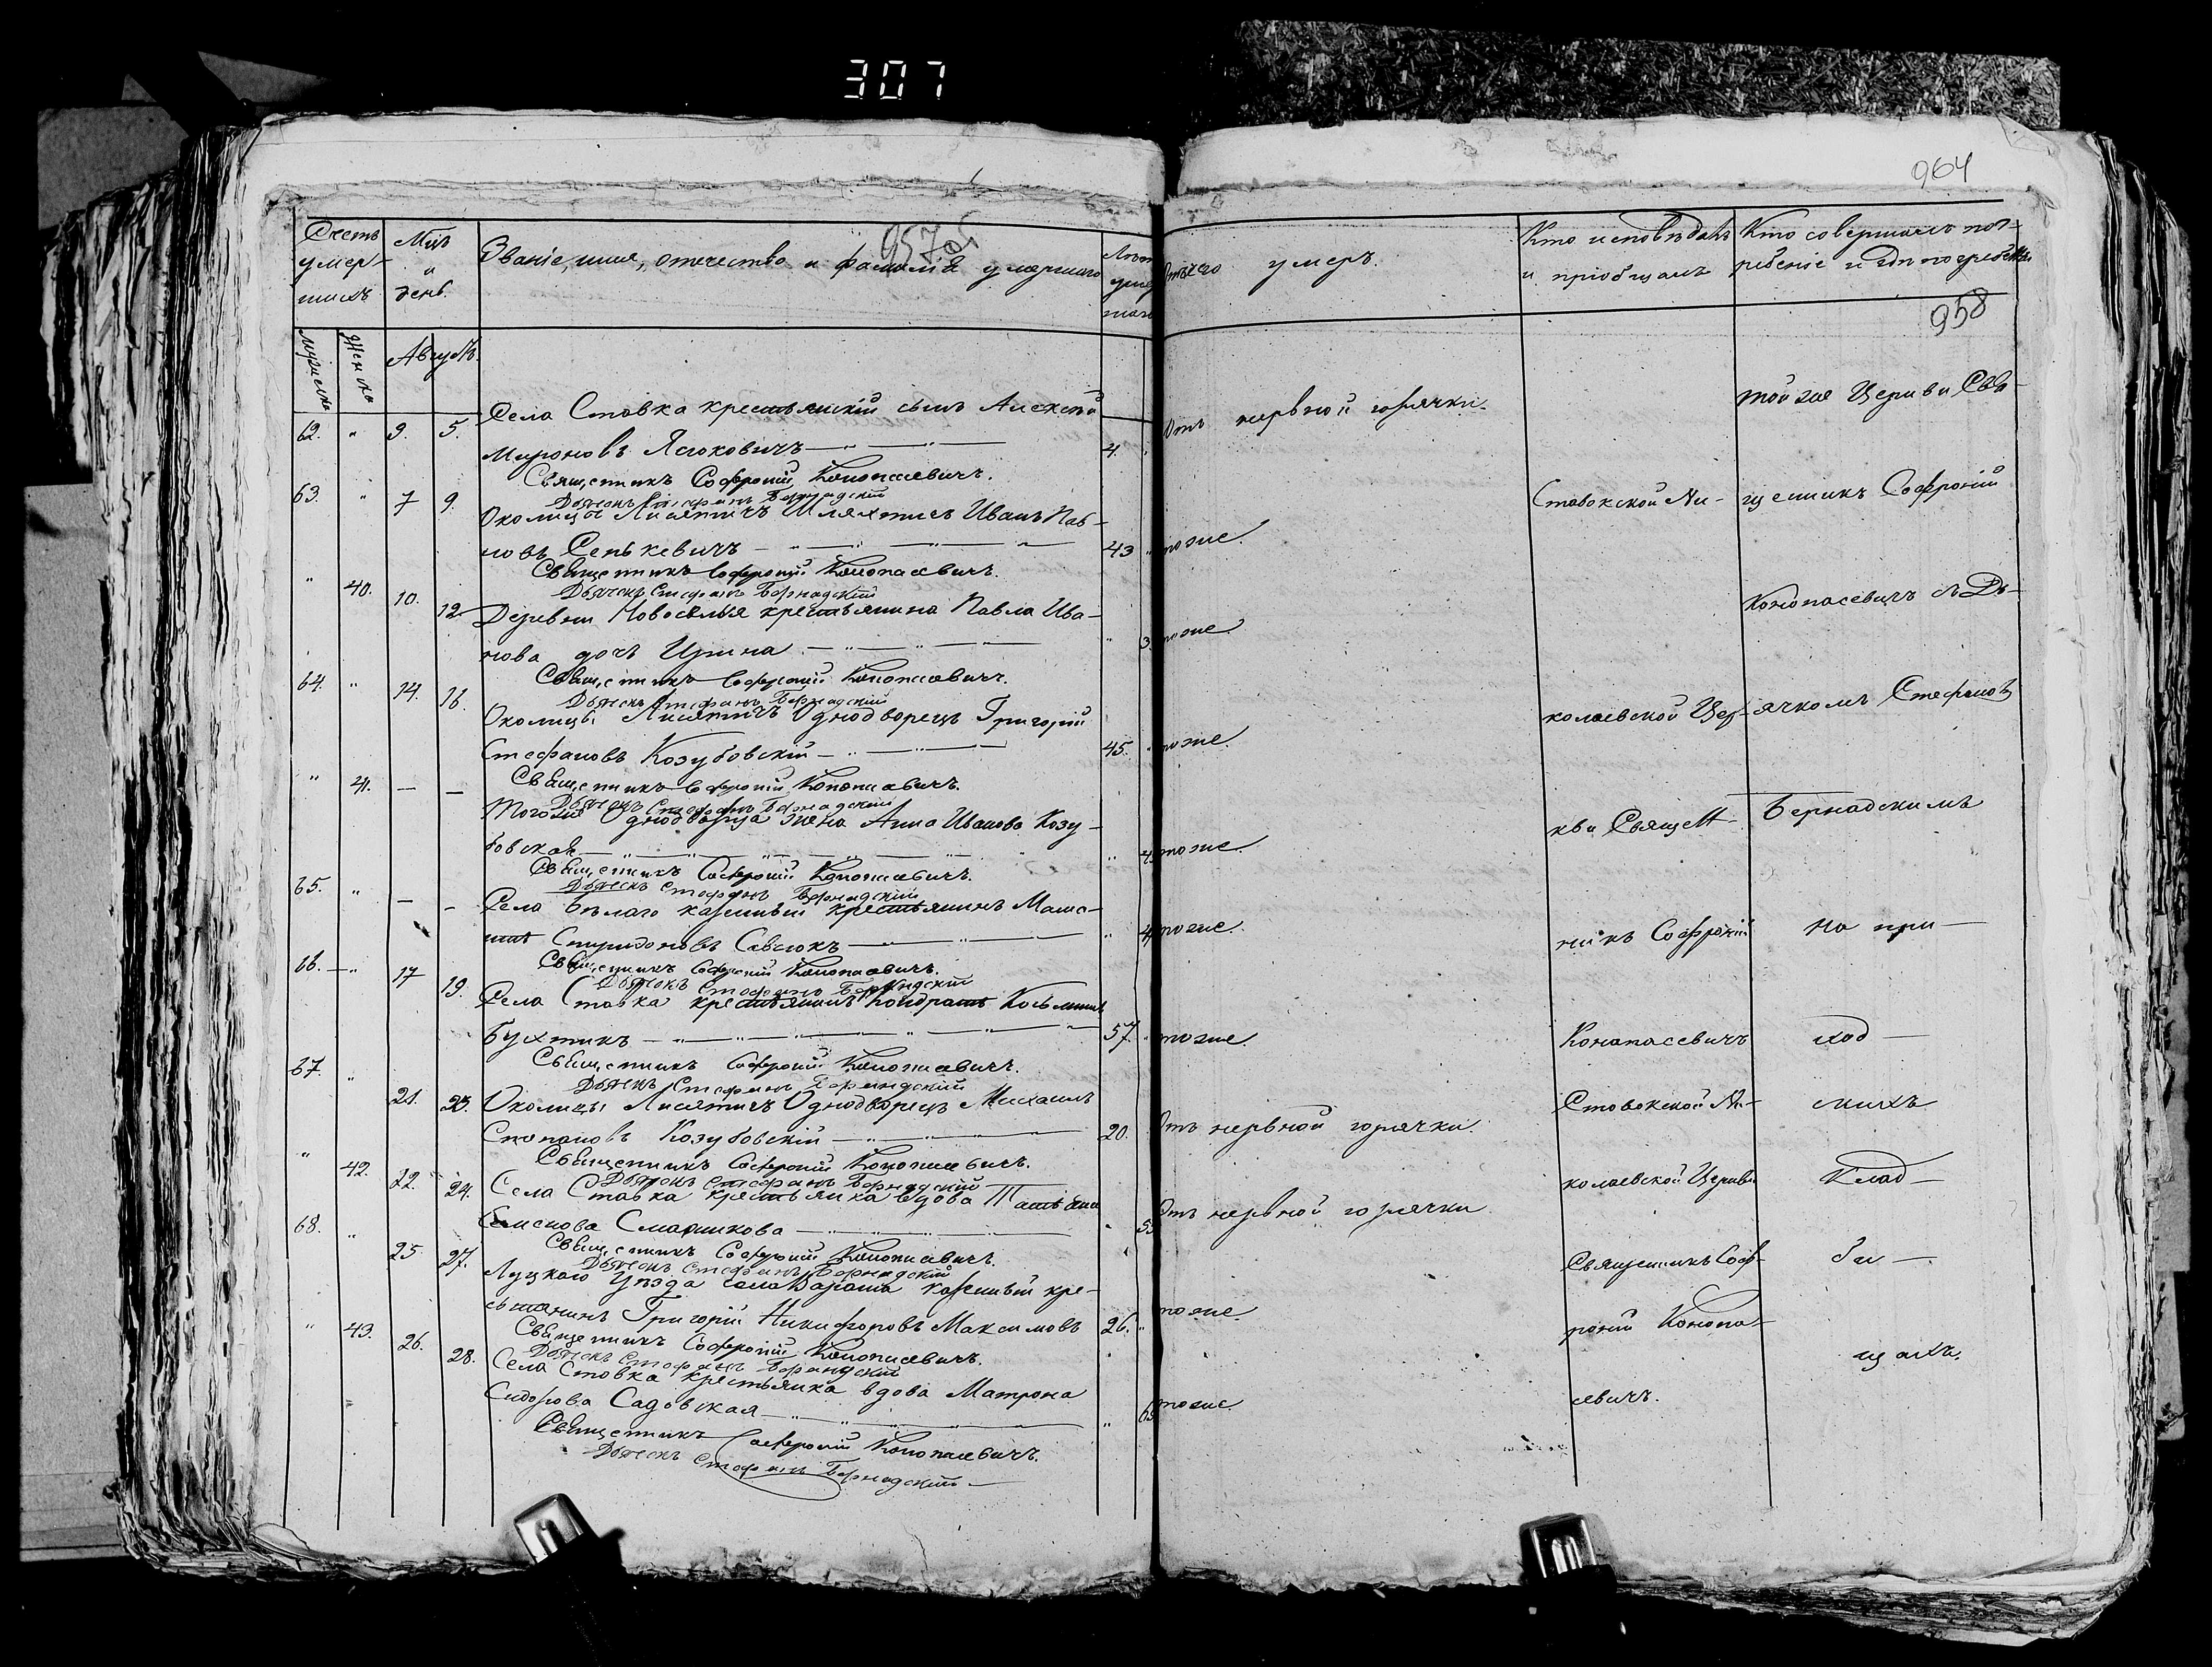 307
964
957 об
958
Счетъ умер- шихъ
Мцъ и день.
Званіе, имя, отчество и фамилія умершаго
Лѣта умер шаго
Отъ чего умеръ.
Кто исповѣдалъ и пріобщалъ
Кто совершалъ пог- ребеніе и гдѣ погребены
Мужеска
Женска
Августъ.
62. " 3. 5. Села Ставка крестьянскій сынъ Алексѣй
Мироновъ Ясюковичъ 4. Отъ нервной горячки.
Священникъ Софроній Конопасевичъ.
Дьячекъ Стефанъ Бернадскій
63. " 7 9. Околицы Лисятичъ Шляхтичъ Иванъ Пав-
ловъ Сенькевичъ 43 " тоже.
Священникъ Софроній Конопасевичъ.
Дьячекъ Стефанъ Бернадскій
" 40. 10. 12. Деревни Новоселья крестьянина Павла Ива-
нова дочь Ирина " 3 тоже.
Священникъ Софроній Конопасевичъ.
Дьячекъ Стефанъ Бернадскій
64. " 14. 16. Околицы Лисятичъ Однодворецъ Григорій
Стефановъ Козубовскій 45. " тоже.
Священникъ Софроній Конопасевичъ.
Дьячекъ Стефанъ Бернадскій
" 41. — — Тогоже Однодворца жена Анна Иванова Козу-
бовская " тоже.
Священникъ Софроній Конопасевичъ.
Дьячекъ Стефанъ Бернадскій
65. " — — Села Бѣлаго казенный крестьянинъ
Спиридоновъ Савсюкъ " тоже.
Священникъ Софроній Конопасевичъ.
Дьячекъ Стефанъ Бернадскій
66. " 17 19. Села Ставка крестьянинъ Кондратъ Косьминъ
Бухтикъ 57. " тоже.
Священникъ Софроній Конопасевичъ.
Дьячекъ Стефанъ Бернадскій
67. " 21. 23. Околицы Лисятичъ Однодворецъ Михаилъ
Степановъ Козубовскій 20. Отъ нервной горячки.
Священникъ Софроній Конопасевичъ.
Дьячекъ Стефанъ Бернадскій
" 42. 22. 24. Села Ставка крестьянка вдова Татьяна
Смаринкова Отъ нервной горячки
Священникъ Софроній Конопасевичъ.
Дьячекъ Стефанъ Бернадскій
68. " 25 27. Луцкаго Уѣзда села казенный кре-
стьянинъ Григорій Никифоровъ Максимовъ 26. " тоже.
Священникъ Софроній Конопасевичъ.
Дьячекъ Стефанъ Бернадскій
" 43. 26. 28. Села Ставка крестьянка вдова Матрона
Сидорова Садовская " тоже.
Священникъ Софроній Конопасевичъ.
Дьячекъ Стефанъ Бернадскій
Ставокской Ни-
колаевской Цер-
кви Священ-
никъ Софроній
Конопасевичъ
Ставокской Ни-
колаевской Церкви
Священникъ Соф-
роній Конопа-
севичъ.
той же Церкви Свя-
щенникъ Софроній
Конопасевичъ съ Дь-
ячкомъ Стефаномъ
Бернадскимъ
на при-
ход-
скихъ
Клад-
би-
щахъ.